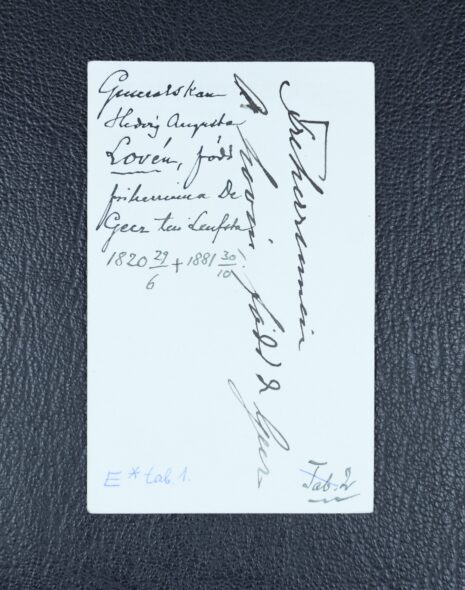 Generalskan
Hedvig Augusta
Lovén, född
friherrinna De
Geer till Leufsta
1820 29/6 + 1881 30/10
Friherrinnan
Lovén född D Geer
E * tab 1.
Tab. 2